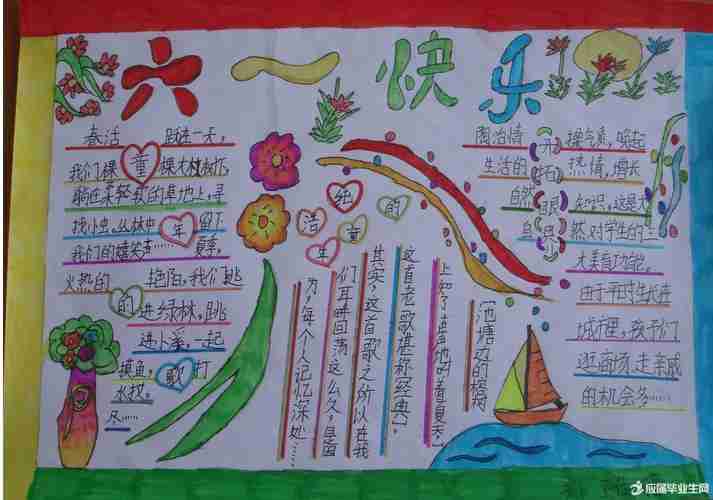 六一快乐
春活 跃进一天,
我们棵 童 棵大树撒怀,
躺在柔轻软的草地上,寻
找小虫。丛林中 年 留下
我们的嬉笑声…… 夏季,
火热的 艳阳,我们跳
的 进绿林,跳
进小溪,一起
摸鱼, 歌 打
水找。
尽……
纯
洁 的
童
年
池塘边的榕树
上,知了在声声地叫着夏天,
这首老歌堪称经典,
其实,这首歌之所以在我
们耳畔回荡这么久,是因
为,每个人记忆深处……
陶冶情 操气质,唤起
生活的 热情,增长
自然 知识,这是大
自 然对学生的三
大美育功能。
由于平时生长在
城市里,孩子们
逛商场,走亲戚
的机会多……
应届毕业生网